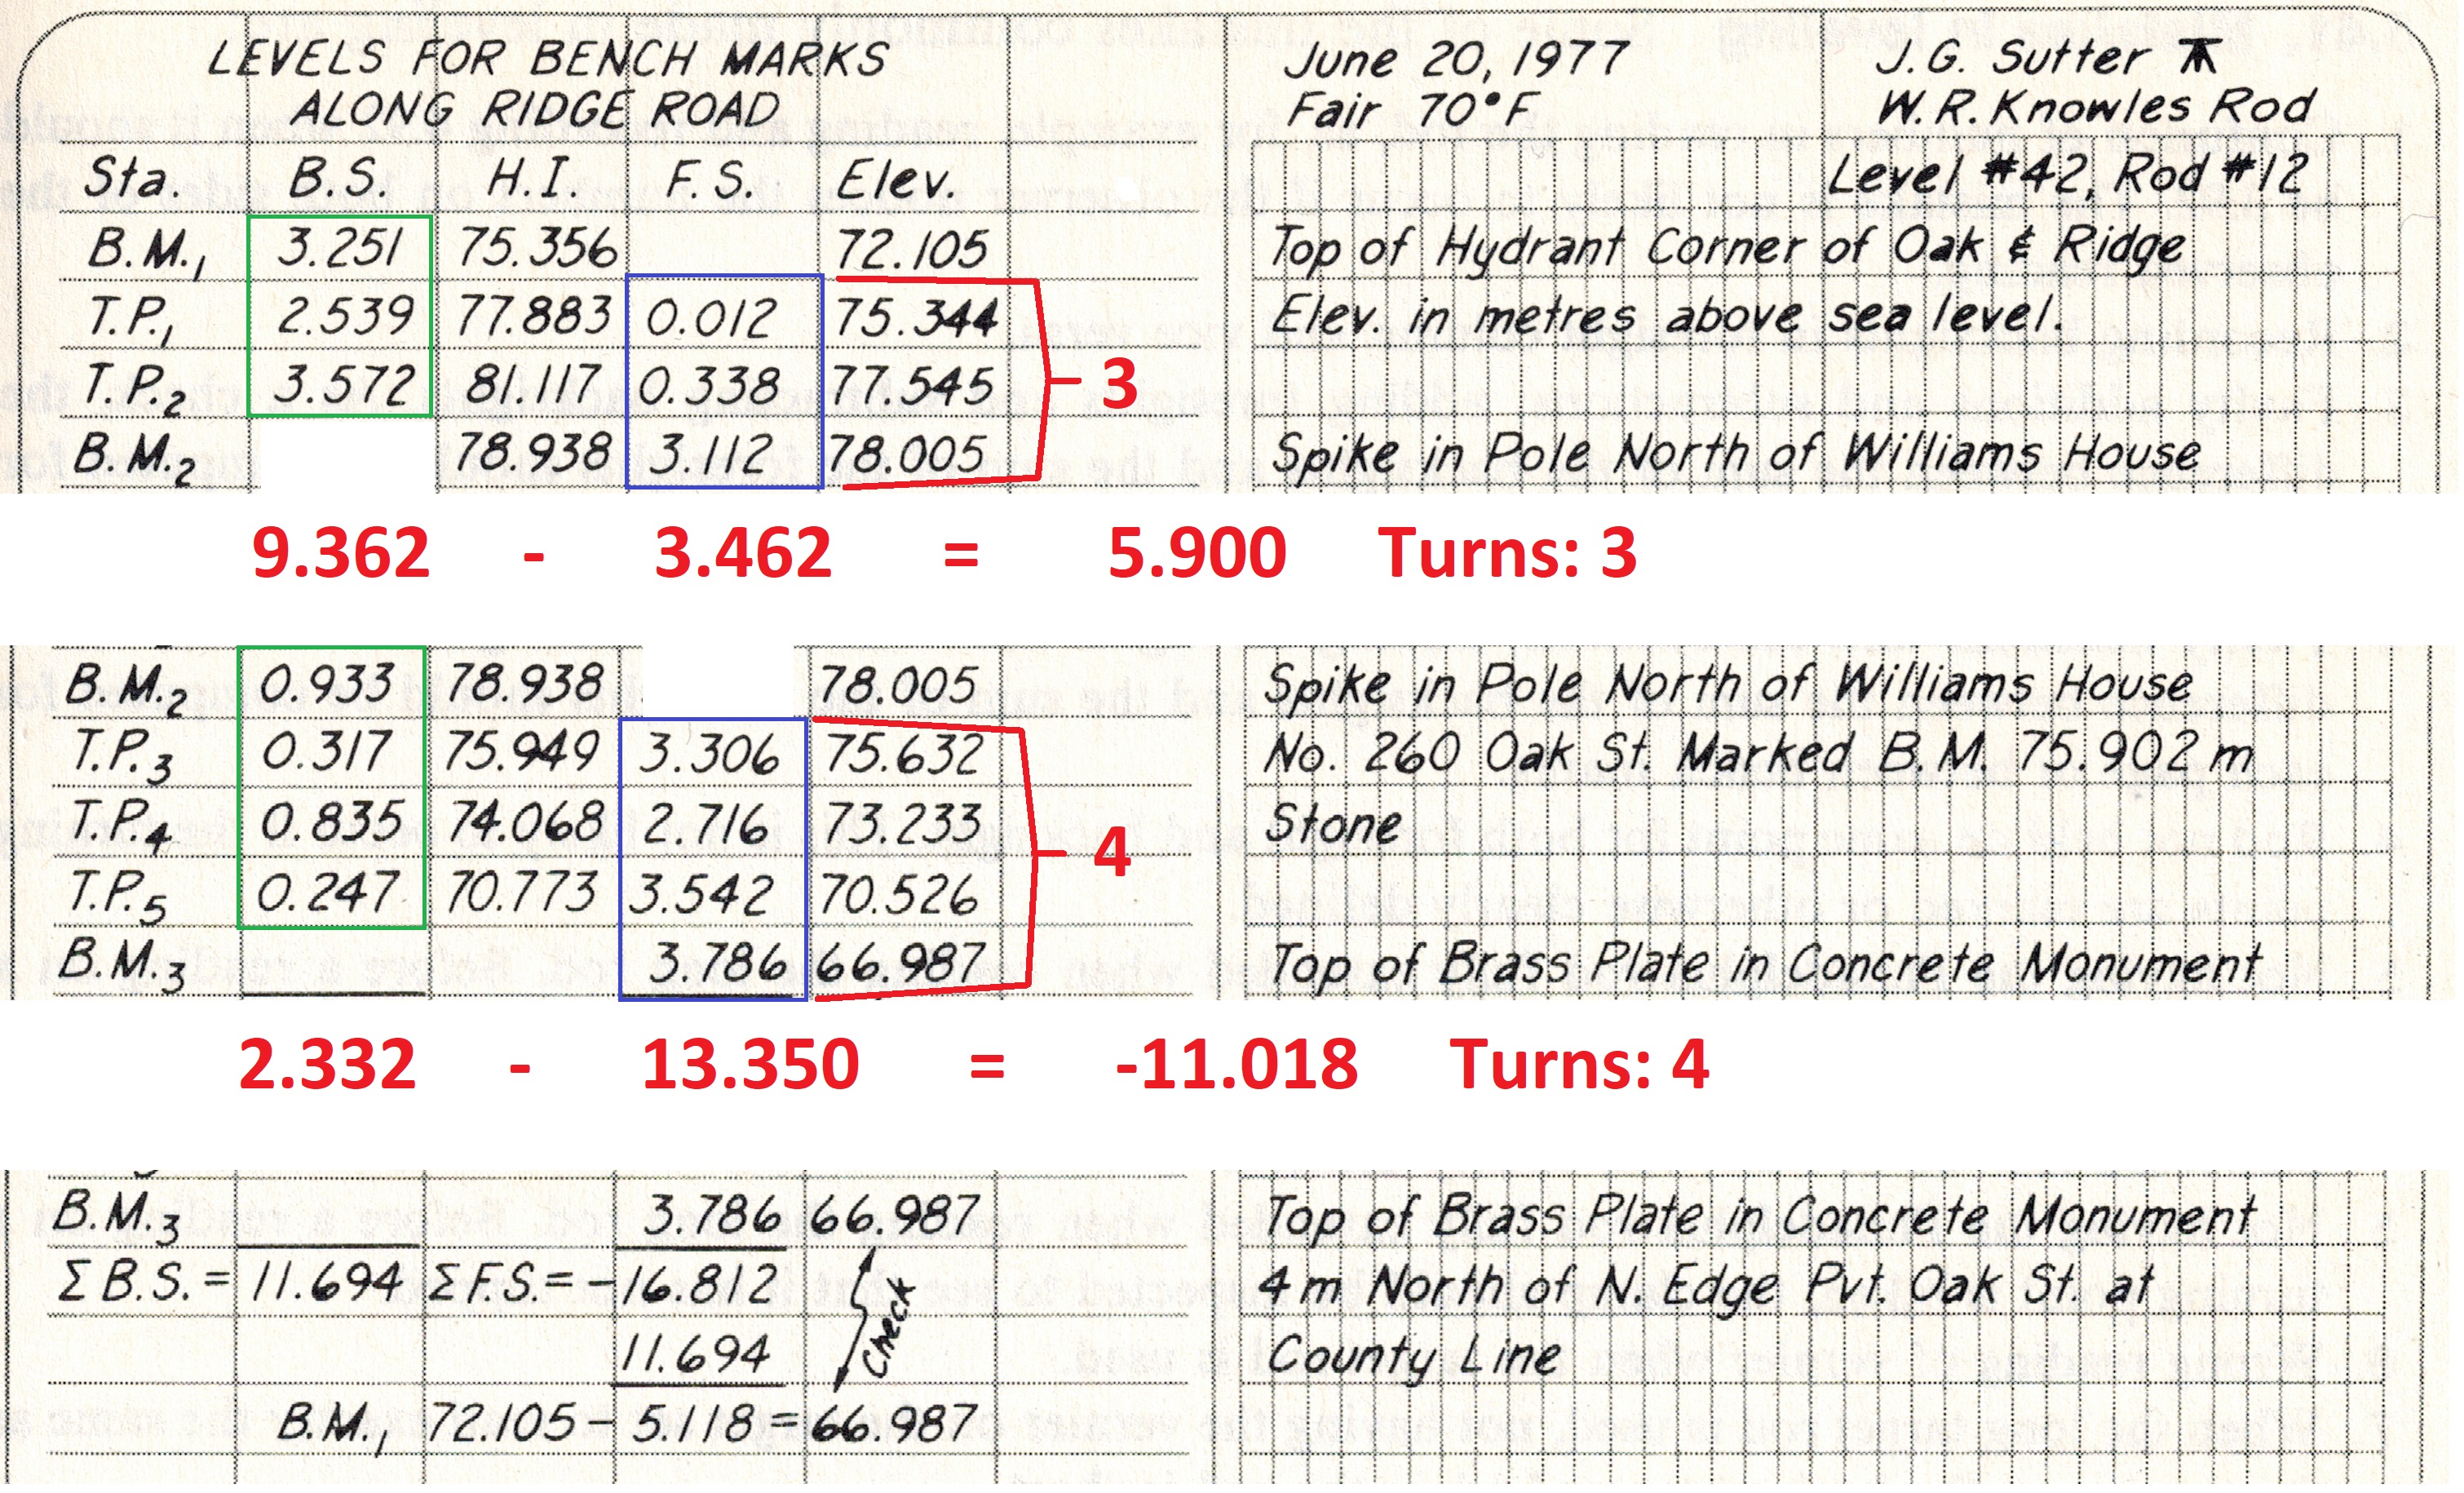 LEVELS FOR BENCH MARKS
ALONG RIDGE ROAD
June 20, 1977
Fair 70°F
J.G. Sutter
W.R. Knowles Rod
Level #42, Rod #12
Sta. B.S. H.I. F.S. Elev.
B.M.1 3.251 75.356 72.105 Top of Hydrant Corner of Oak & Ridge
T.P.1 2.539 77.883 0.012 75.344 Elev. in metres above sea level.
T.P.2 3.572 81.117 0.338 77.545
3
B.M.2 78.938 3.112 78.005 Spike in Pole North of Williams House
9.362 - 3.462 = 5.900 Turns: 3
B.M.2 0.933 78.938 78.005 Spike in Pole North of Williams House
T.P.3 0.317 75.949 3.306 75.632 No. 260 Oak St. Marked B.M. 75.902 m
T.P.4 0.835 74.068 2.716 73.233 Stone
4
T.P.5 0.247 70.773 3.542 70.526
B.M.3 3.786 66.987 Top of Brass Plate in Concrete Monument
2.332 - 13.350 = -11.018 Turns: 4
B.M.3 3.786 66.987 Top of Brass Plate in Concrete Monument
Σ B.S. = 11.694 Σ F.S. = -16.812 4 m North of N. Edge Pvt. Oak St. at
11.694 Check County Line
B.M.1 72.105 - 5.118 = 66.987